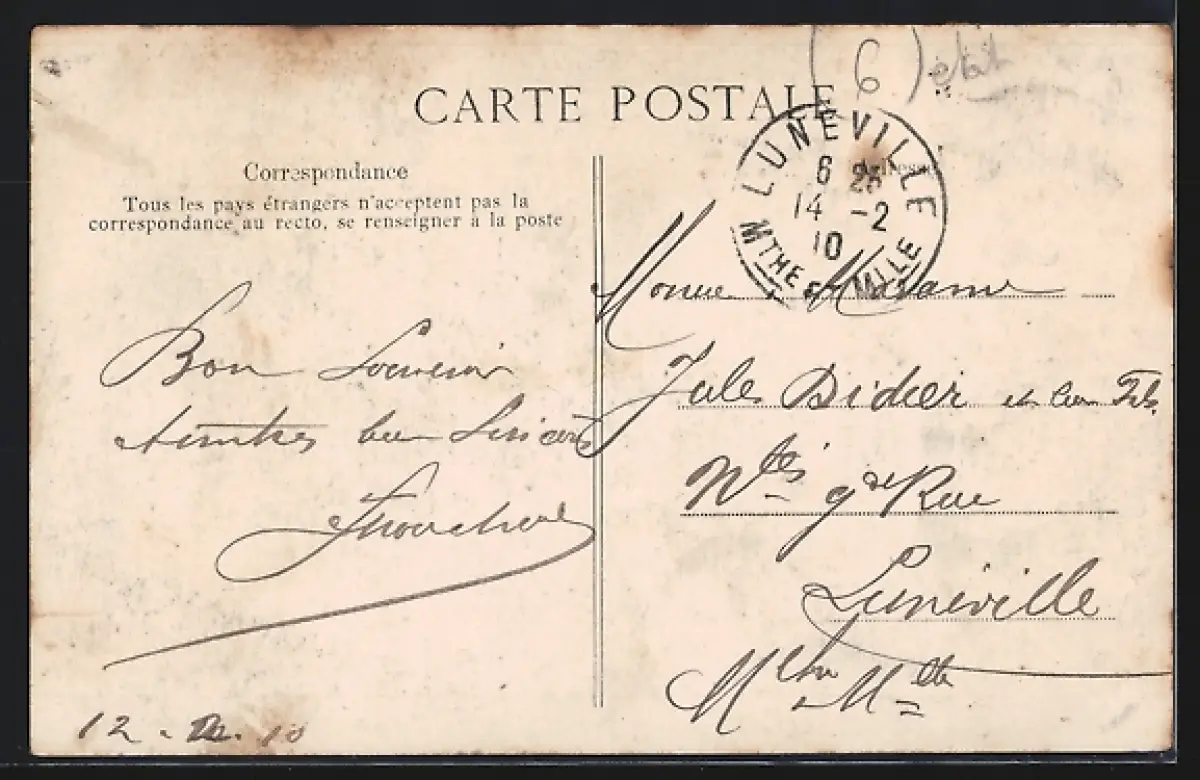 6
état
CARTE POSTALE
LUNÉVILLE
6 25
14 -2
10
MTHE & MLLE
Correspondance
Adresse
Tous les pays étrangers n'acceptent pas la
correspondance au recto, se renseigner à la poste
Bon Souvenir
Amitiés bien Sincères
12 . 2. 10
Monsieur & Madame
Jules Didier et leur Fils
Nts gde Rue
Lunéville
Mthe & Mlle